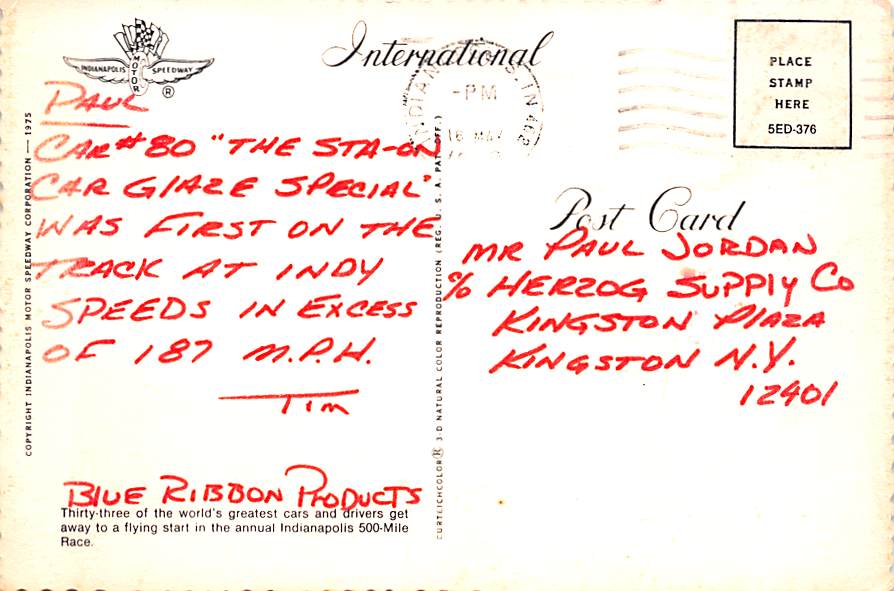 INDIANAPOLIS MOTOR SPEEDWAY
®
International
INDIAN S, IN 462
-PM
16 MAY
PLACE
STAMP
HERE
5ED-376
PAUL
CAR #80 "THE STA-ON
CAR GLAZE SPECIAL"
WAS FIRST ON THE
TRACK AT INDY
SPEEDS IN EXCESS
OF 187 M.P.H.
TIM
BLUE RIBBON PRODUCTS
Thirty-three of the world's greatest cars and drivers get
away to a flying start in the annual Indianapolis 500-Mile
Race.
COPYRIGHT INDIANAPOLIS MOTOR SPEEDWAY CORPORATION — 1975
CURTEICHCOLOR® 3-D NATURAL COLOR REPRODUCTION (REG. U. S. A. PAT. OFF.)
Post Card
MR PAUL JORDAN
% HERZOG SUPPLY CO
KINGSTON PLAZA
KINGSTON N.Y.
12401